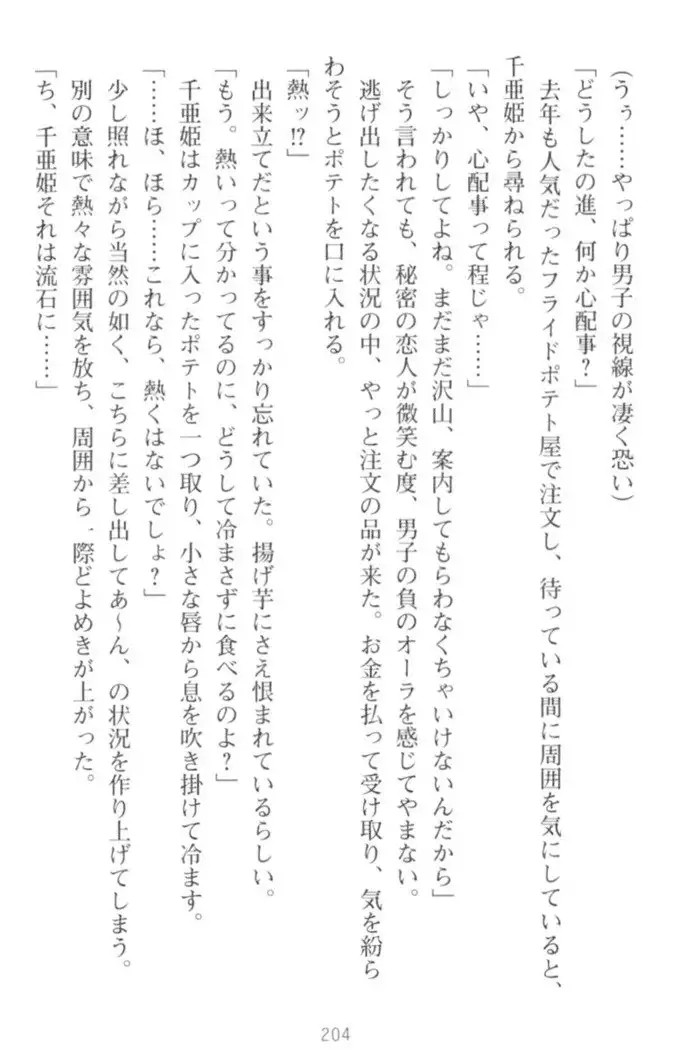 (うぅ……やっぱり男子の視線が凄く恐い)
「どうしたの進、何か心配事？」
去年も人気だったフライドポテト屋で注文し、待っている間に周囲を気にしていると、
千亜姫から尋ねられる。
「いや、心配事って程じゃ……」
「しっかりしてよね。まだまだ沢山、案内してもらわなくちゃいけないんだから」
そう言われても、秘密の恋人が微笑む度、男子の負のオーラを感じてやまない。
逃げ出したくなる状況の中、やっと注文の品が来た。お金を払って受け取り、気を紛ら
わそうとポテトを口に入れる。
「熱ッ!?」
出来立てだという事をすっかり忘れていた。揚げ芋にさえ恨まれているらしい。
「もう。熱いって分かってるのに、どうして冷まさずに食べるのよ？」
千亜姫はカップに入ったポテトを一つ取り、小さな唇から息を吹き掛けて冷ます。
「……ほ、ほら……これなら、熱くはないでしょ？」
少し照れながら当然の如く、こちらに差し出してあ～ん、の状況を作り上げてしまう。
別の意味で熱々な雰囲気を放ち、周囲から一際どよめきが上がった。
「ち、千亜姫それは流石に……」
204